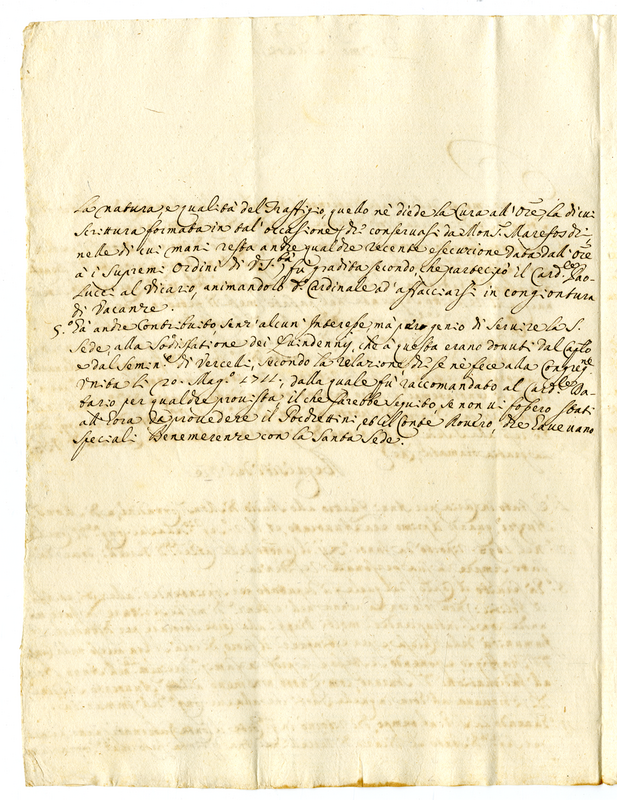 La natura, e qualità del Traffigio, quello nè diede la Cura all' Ore, la di cui
Scrittura formata in tal' occasione, conservasi da Mons. Marefoschi,
nelle di cui mani resta anche qualche recente esecuzione data dall' Ore
à i Supremi Ordini di V. S.tà, fù gradita secondo, che partecipò il Card.le Pao-
lucci al Vicario, animandolo d.o Cardinale ad' affacciarsi in congiontura
di Vacanze.
5.o Hà anche Contribuito senz' alcun' Interesse, mà puro genio di Servire la S.
Sede, alla Sodisfatione dei Quindennij, che à questa erano dovuti dal Caplo
e dal Semin.o di Vercelli, secondo la relazione, che se nè fece alla Congreg.ne
Vnita li 20. Mag.o 1711. dalla quale fù raccomandato al Card.le Da-
tario per qualche provista, il che sarebbe seguito, se non vi fossero stati
all' hora da provedere il Pochettini, ed il Conte Rovero, che haveuano
speciali Benemerenze con la Santa Sede.